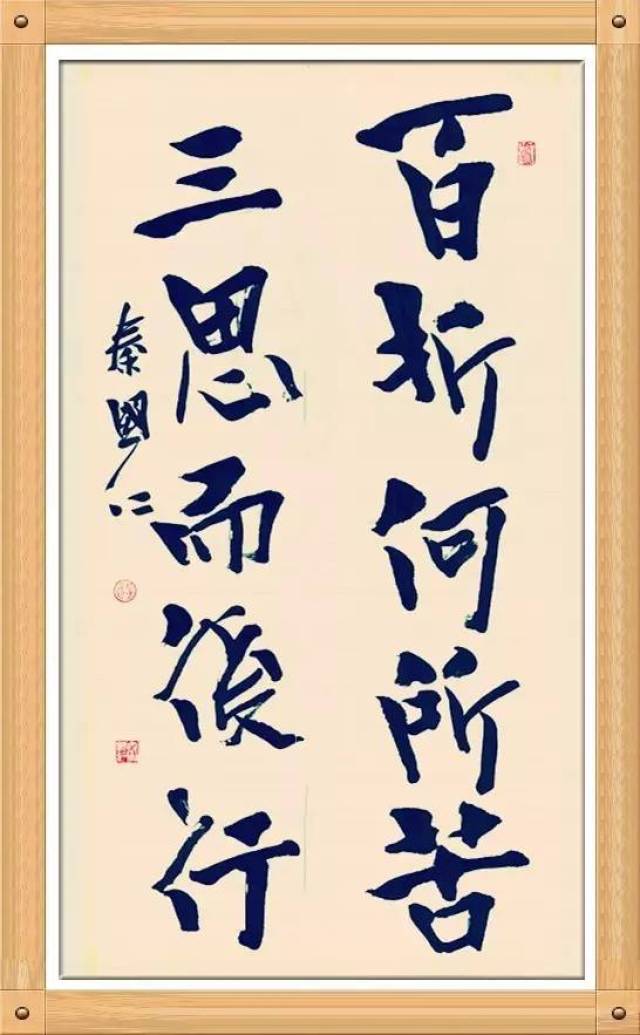 百折何所苦
三思而後行
秦國仁